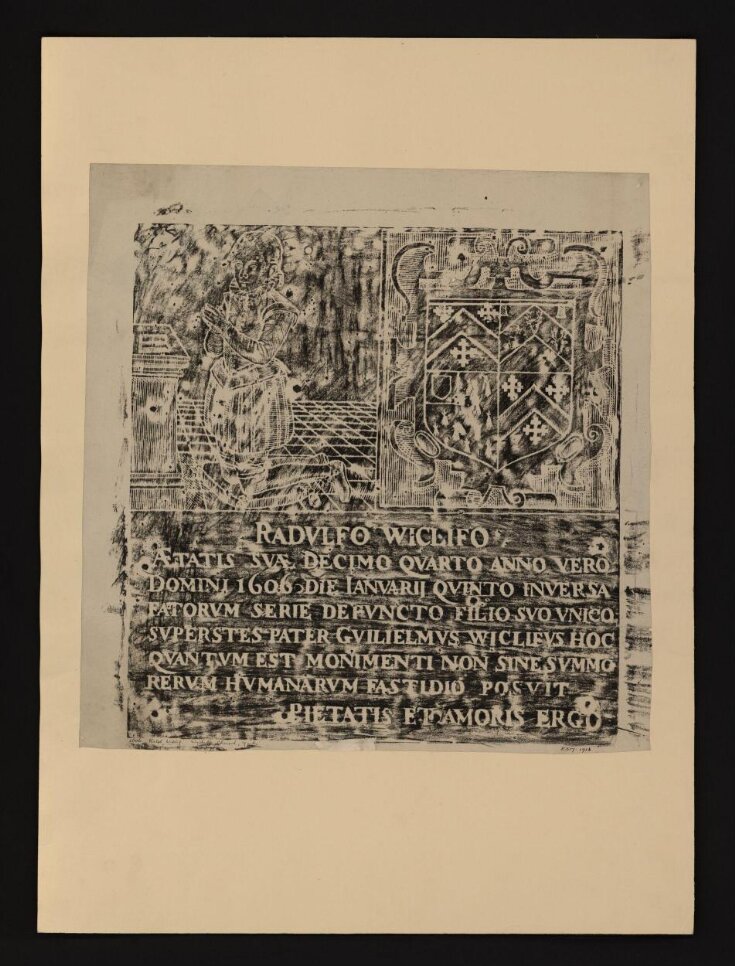 RADVLFO WICLIFO
ÆTATIS SVÆ DECIMO QVARTO ANNO VERO
DOMINI 1606 DIE IANVARIJ QVINTO INVERSA
FATORVM SERIE DEFVNCTO FILIO SVO VNICO
SVPERSTES PATER GVILIELMVS WICLIFVS HOC
QVANTVM EST MONIMENTI NON SINE SVMMO
RERVM HVMANARVM FASTIDIO POSVIT
PIETATIS ET AMORIS ERGO